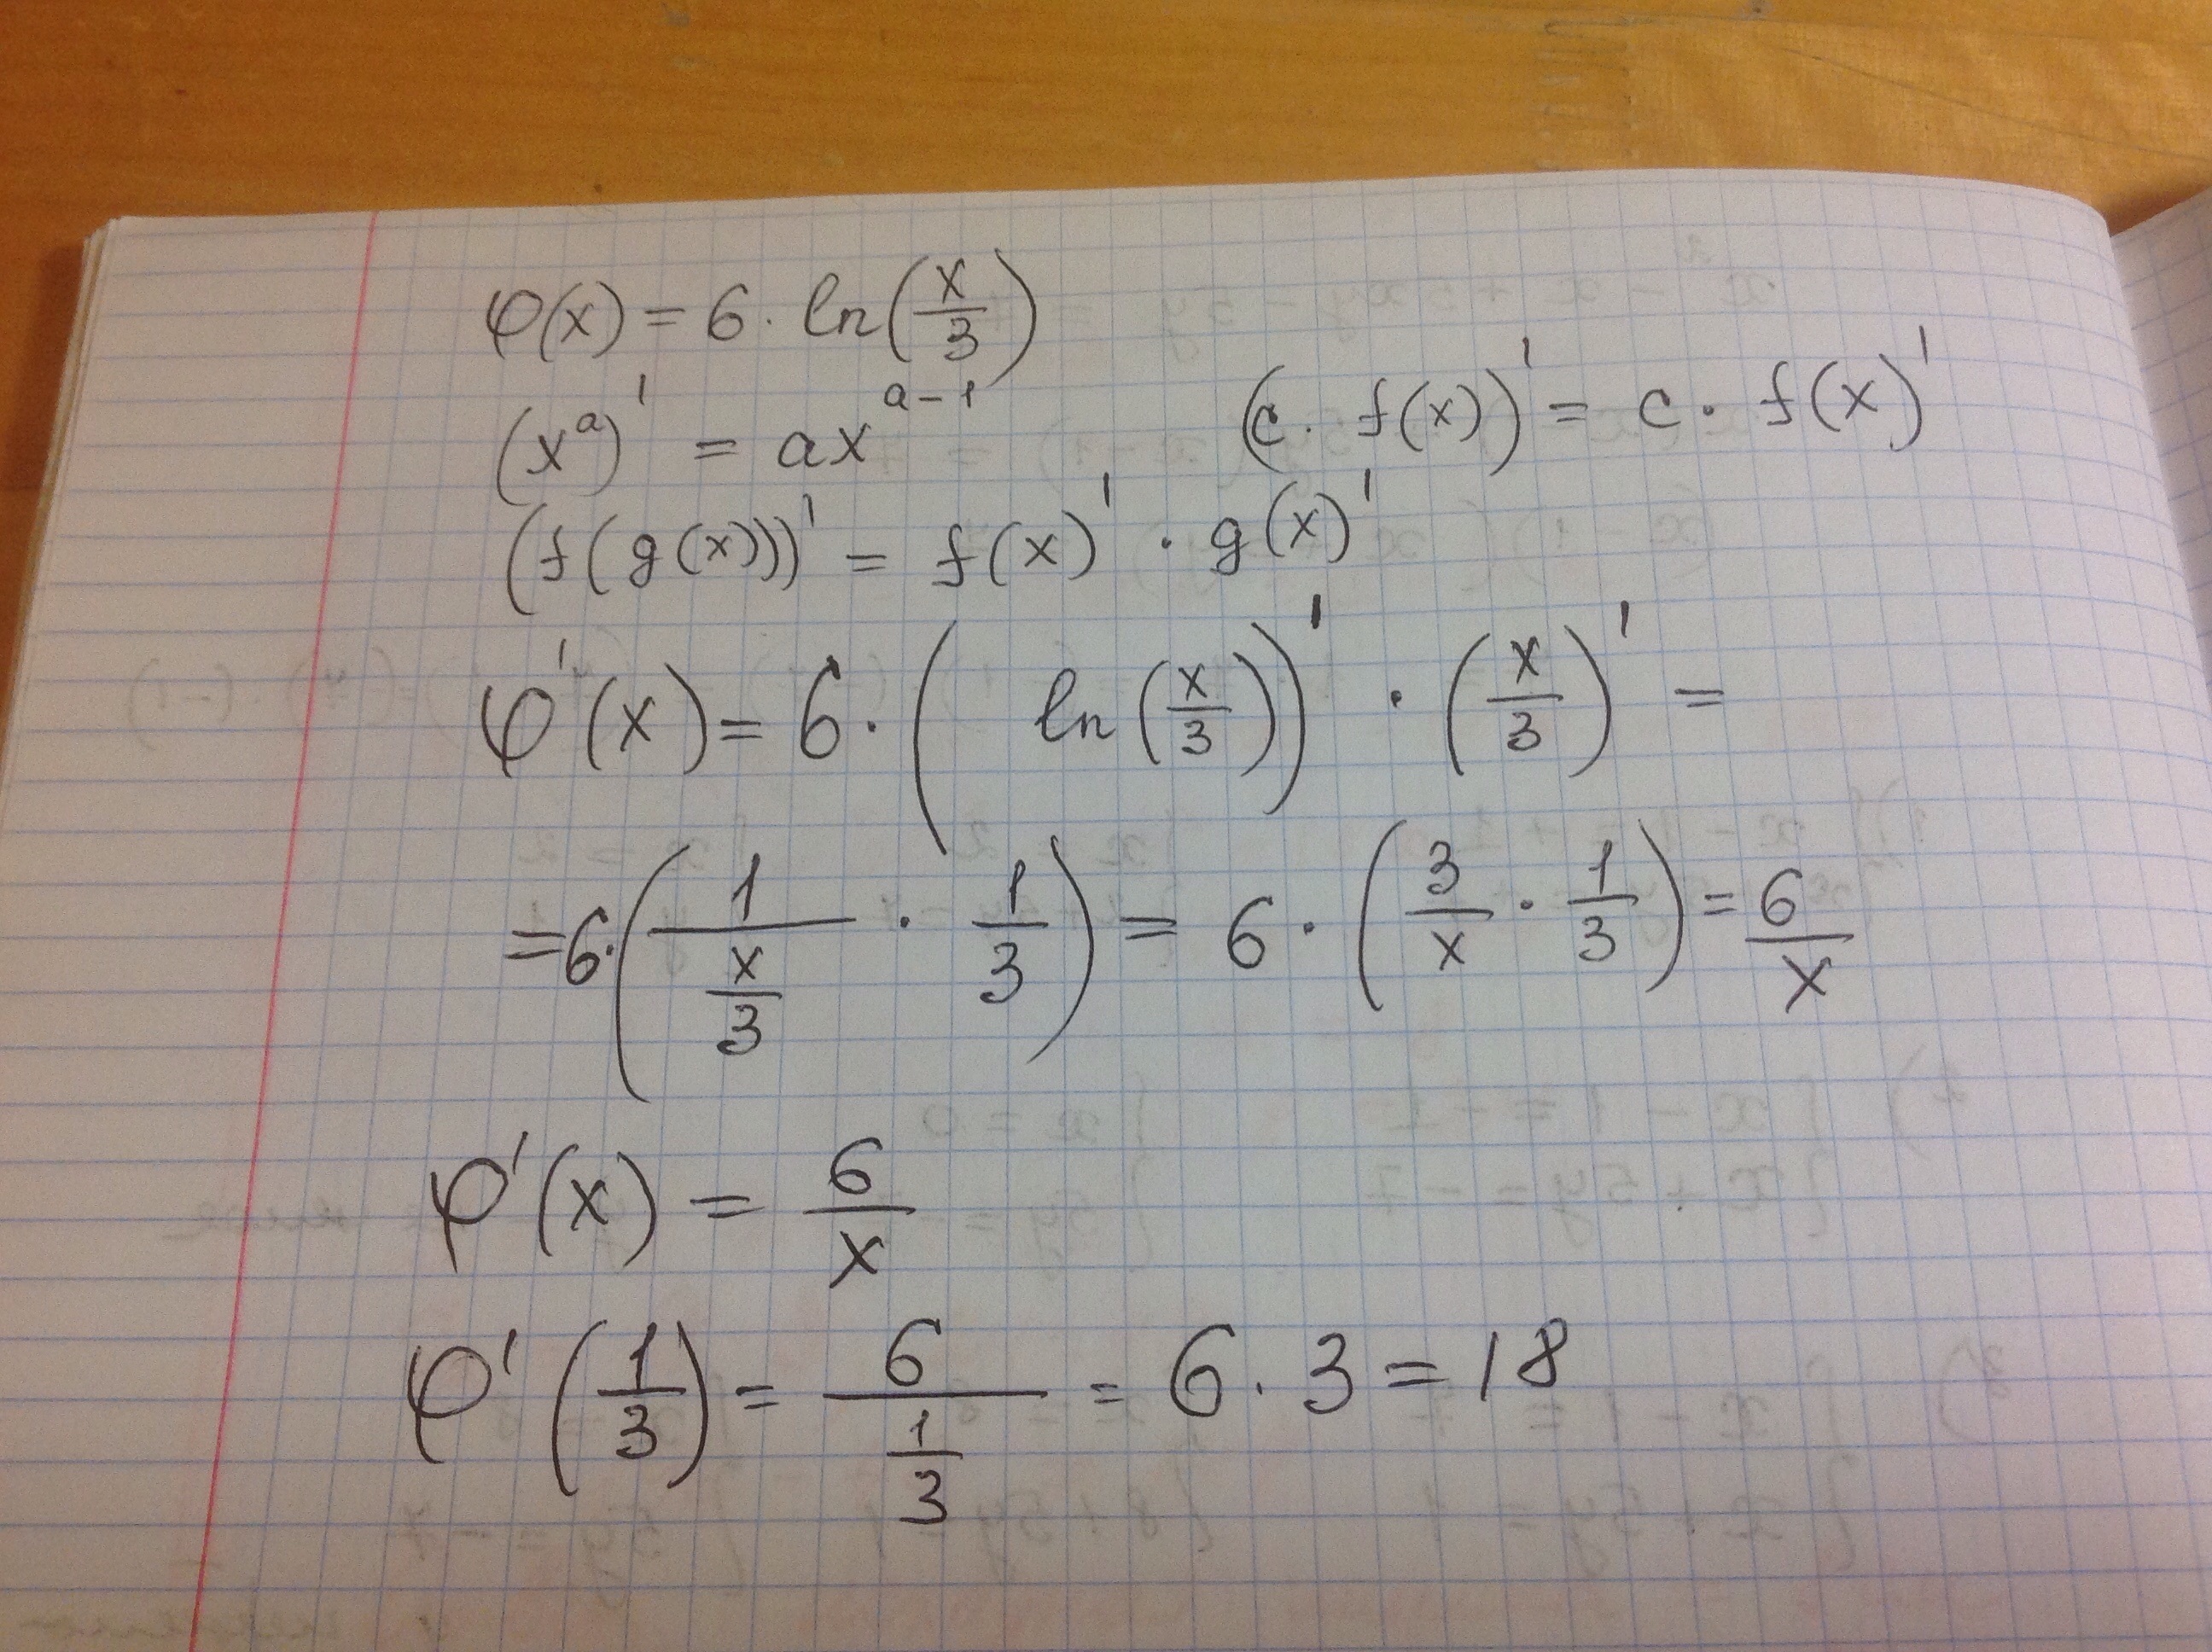 φ(x) = 6 · ln(x/3)
(x^a)' = ax^(a-1)
(c · f(x))' = c · f(x)'
(f(g(x)))' = f(x)' · g(x)'
φ'(x) = 6 · (ln(x/3))' · (x/3)' =
= 6 · (1/(x/3) · 1/3) = 6 · (3/x · 1/3) = 6/x
φ'(x) = 6/x
φ'(1/3) = 6/(1/3) = 6 · 3 = 18